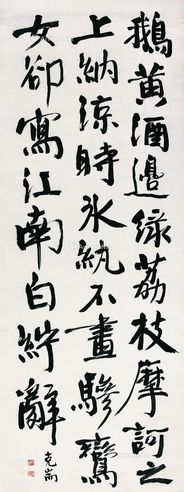 鵝黃酒邊綠荔枝摩訶池
上納涼時冰紈不畫驂鸞
女卻寫江南白紵辭
克嵩